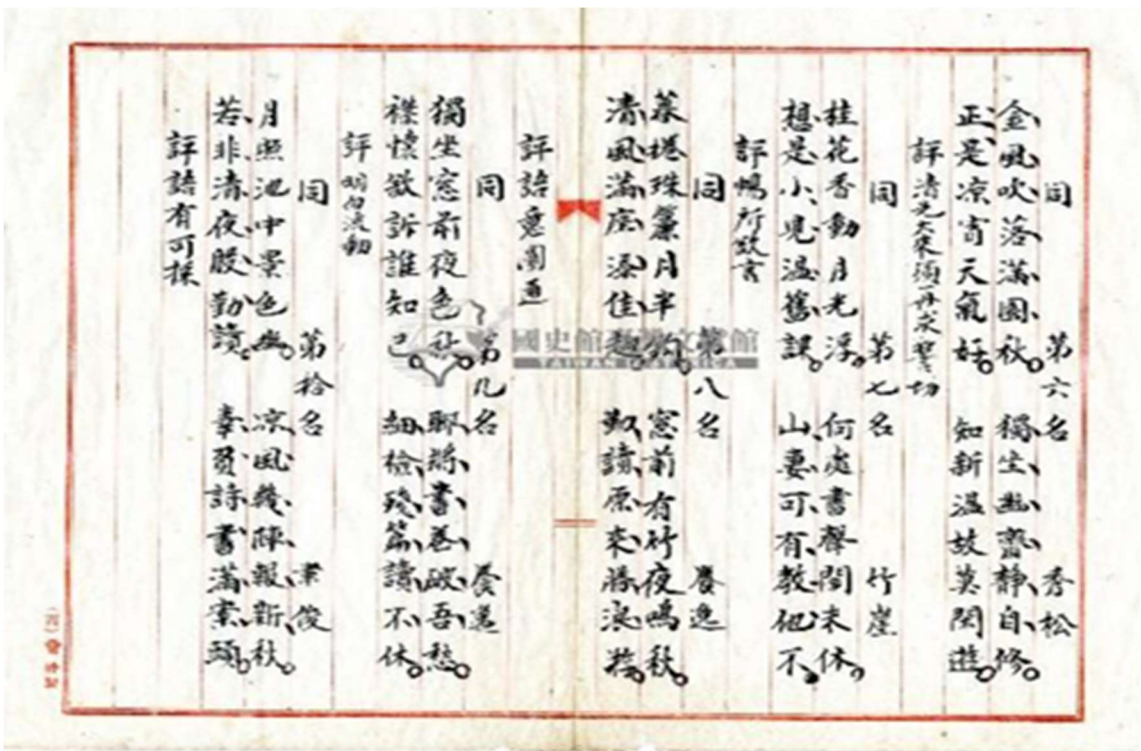 同 第六名 秀松
金風吹落滿園秋 獨坐幽齋靜自修
正是凉宵天氣好 知新溫故莫閒遊
評 清光大來須再求警切
同 第七名 竹崖
桂花香動月光浮 何處書聲閙未休
想是小兒溫舊課 山妻可有教他不
評 暢所欲言
同 第八名 養逸
捲珠簾月半 窓前有竹夜鳴秋
清風滿座添佳趣 勤讀原來勝浪游
評 語意圓通
同 第九名 養逸
獨坐窓前夜色 聊將書卷破吾愁
襟懷欲訴誰知己 細檢殘篇讀不休
評 明白流動
同 第拾名 俊
月照池中景色幽 凉風幾陣報新秋
若非清夜殷勤讀 辜負詩書滿案頭
評 語有可採
國史館臺灣文獻館
TAIWAN HISTORICA